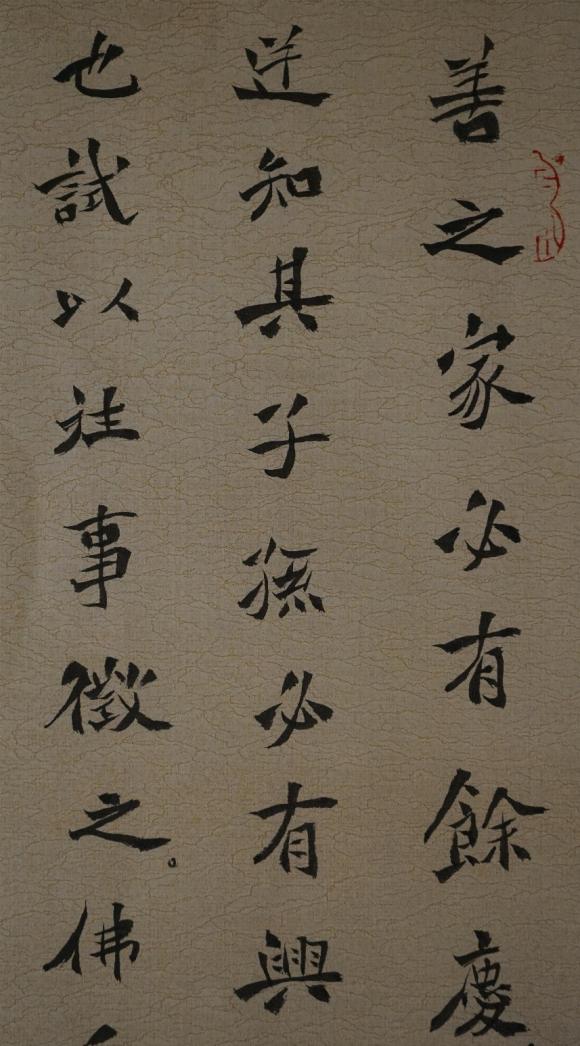 善之家必有餘慶
逆知其子孫必有興
也試以往事徵之。佛